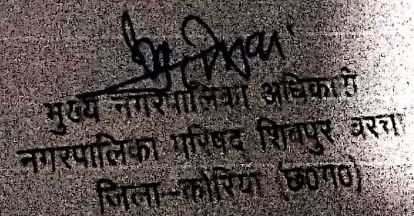 मुख्य नगरपालिका अधिकारी
नगरपालिका परिषद शिवपुर चरचा
जिला-कोरिया (छ०ग०)